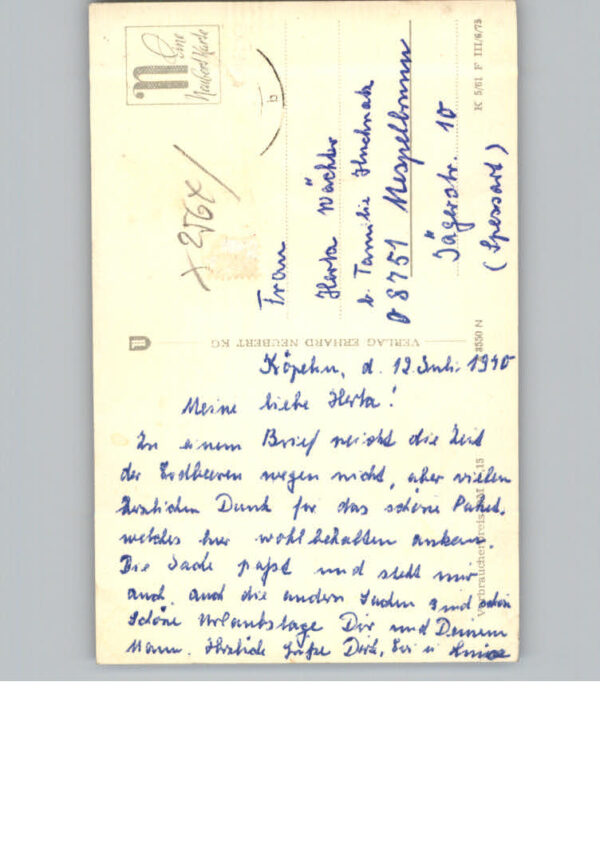 Meine
Neubert Karte
+ 256x /
Frau
Herta Wächter
b. Familie
08751 Mespelbrunn
Jägerstr. 10
(Spessart)
VERLAG ERHARD NEUBERT KG
K 5/61 F III/6/73
3550 N
d. 12. Juli 1970
Meine liebe Herta!
Zu einem Brief reicht die Zeit
der Erdbeeren wegen nicht, aber vielen
herzlichen Dank für das schöne Paket,
welches hier wohlbehalten ankam.
Die Jacke paßt und steht mir
auch, auch die andern Sachen sind schön
Schöne Urlaubstage Dir und Deinem
Mann. Herzliche Grüße